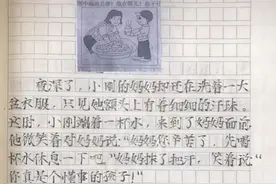 夜深了，小刚的妈妈却还在洗着一大
盆衣服，只见她额头上有着细细的汗珠。
这时，小刚端着一杯水，来到了妈妈面前
他微笑着对妈妈说："妈妈您辛苦了，先喝
杯水休息一下吧。"妈妈抹了把汗，笑着说："
你真是个懂事的孩子！"